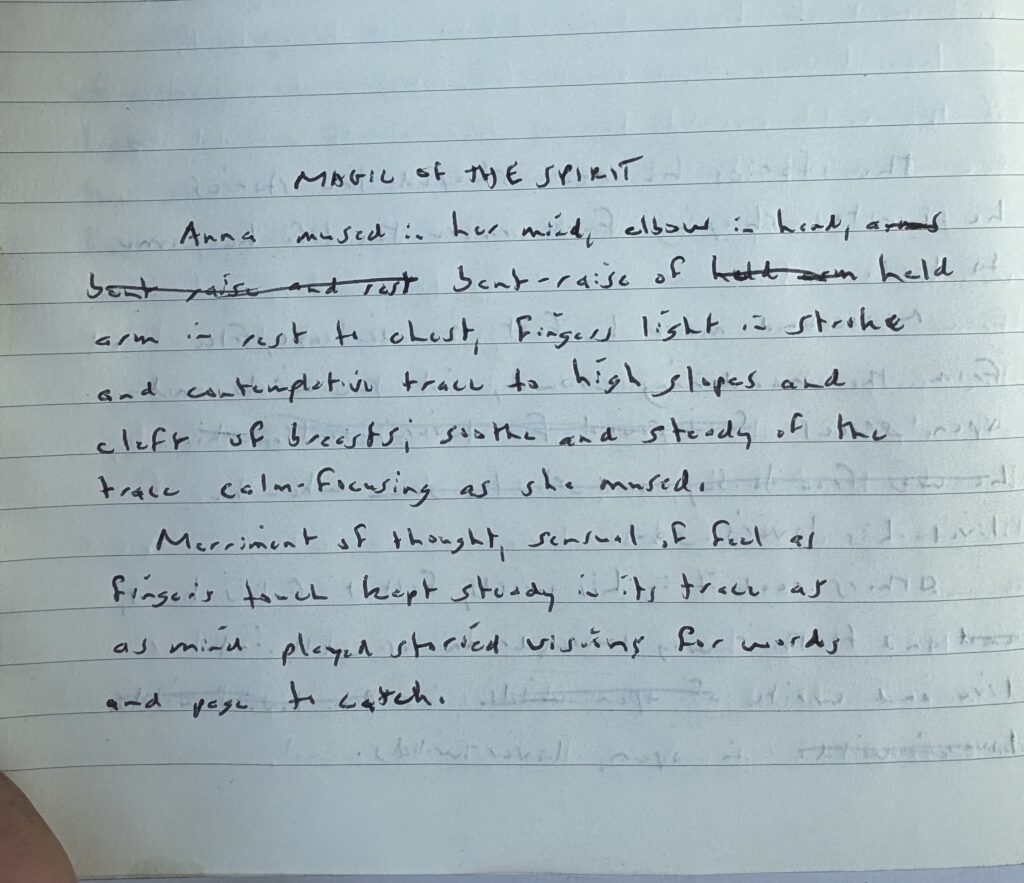 MAGIC OF THE SPIRIT
Anna mused in her mind, elbow in hand, arms
bent raise and rest bent-raise of held arm held
arm in rest to chest, fingers light in stroke
and contemplative trace to high slopes and
cleft of breasts; soothe and steady of the
trace calm-focusing as she mused.
Merriment of thought, sensual of feel as
fingers touch kept steady in its trace as
as mind played storied visions for words
and page to catch.